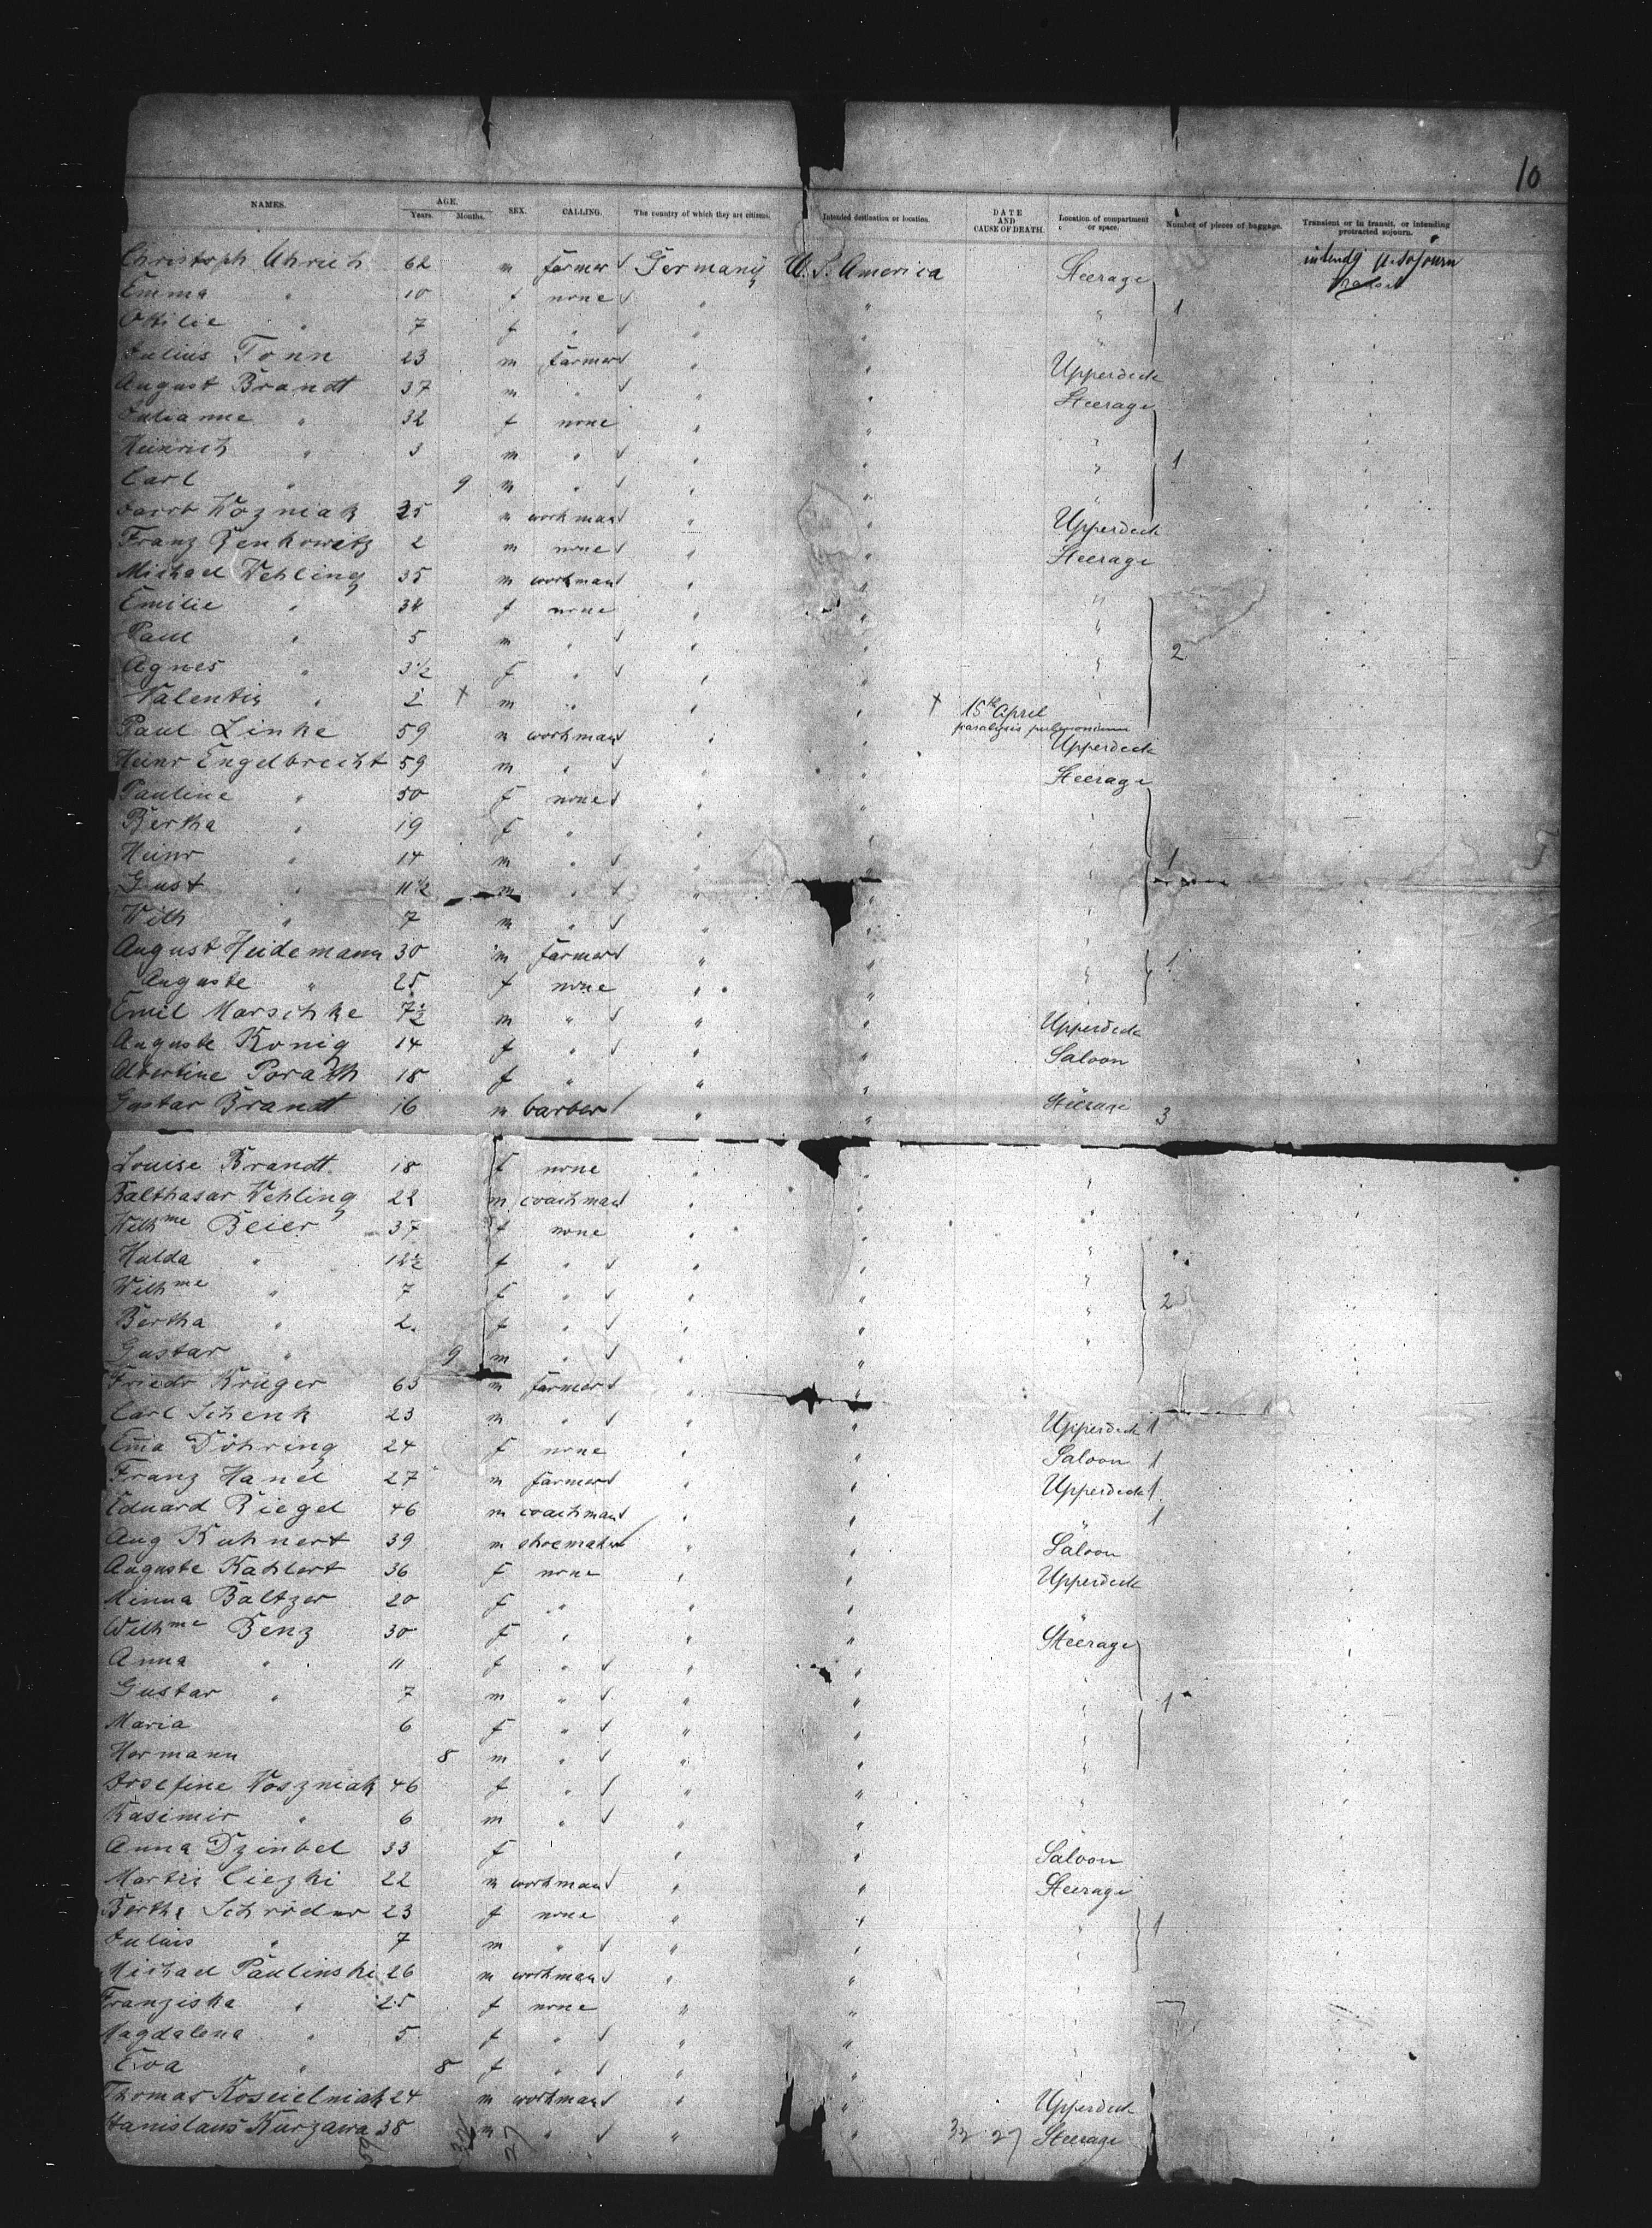 10
NAMES. AGE. Years. Months. SEX. CALLING. The country of which they are citizens. Intended destination or location. DATE AND CAUSE OF DEATH. Location of compartment or space. Number of pieces of baggage. Transient or in transit, or intending protracted sojourn.
Christoph Uhrich 62 m farmer Germany U. S. America Steerage
Emma " 10 f none " " " 1
Ottilie " 7 f " " " "
Julius Tonn 23 m farmer " " Upperdeck
August Brandt 37 m " " " Steerage
Julianne " 32 f none " " "
Heinrich " 3 m " " " " 1
Carl " 9 m " " " "
Wozniak 25 m workman " " Upperdeck
Franz 2 m none " " Steerage
Michael Wehling 35 m workman " " "
Emilie " 34 f none " " "
Paul " 5 m " " " "
Agnes " 3 1/2 f " " " " 2
Valentin " 2 + m " " " + 15th April paralysis pulmonum
Paul Linke 59 m workman " " Upperdeck
Heinr Engelbrecht 59 m " " " Steerage
Pauline " 50 f none " "
Bertha " 19 f " " " "
Heinr " 14 m " " " 1
Gust " 11 1/2 m " " " "
Wilh " 7 m " " " "
August Heidemann 30 m farmer " " " 1
Auguste " 25 f none " " "
Emil Marschke 7 1/2 m " " " Upperdeck
Auguste König 14 f " " " Saloon
Albertine Porath 18 f " " "
Gustav Brandt 16 m barber " " Steerage 3
Louise Brandt 18 f none " " "
Balthasar Wehling 22 m coachman " " "
Wilhme Beier 37 f none " "
Hulda " 12 1/2 f " " " "
Wilhme " 7 f " " " " 2
Bertha " 2 f " " " "
Gustav " 9 m " " "
Friedr Krüger 63 m farmer " "
Carl Schenk 23 m " " " Upperdeck 1
Ema Döhring 24 f none " " Saloon 1
Franz Hanel 27 m farmer " " Upperdeck 1
Eduard Riegel 46 m coachman " " " 1
Aug Kuhnert 39 m shoemaker " " Saloon
Auguste Kahlert 36 f none " " Upperdeck
Minna Baltzer 20 f " " "
Wilhme Benz 30 f " " " Steerage
Anna " 11 f " " "
Gustav " 7 m " " " " 1
Maria 6 f " " " "
Hermann 8 m " " " "
Josefine Woszniak 46 f " " " "
Kasimir " 6 m " " " "
Anna Dzinbel 33 f " " Saloon
Martin Ciezki 22 m workman " " Steerage
Bertha Schröder 23 f none " " " 1
Julius " 7 m " " " "
Michael Paulinski 26 m workman " " "
Franziska " 25 f none " " "
Magdalena " 5 f " " " "
Eva " 8 f " " " "
Thomas Koscielniak 24 m workman " " Upperdeck
Stanislaus Kurzawa 38 m " " " 32 27 Steerage